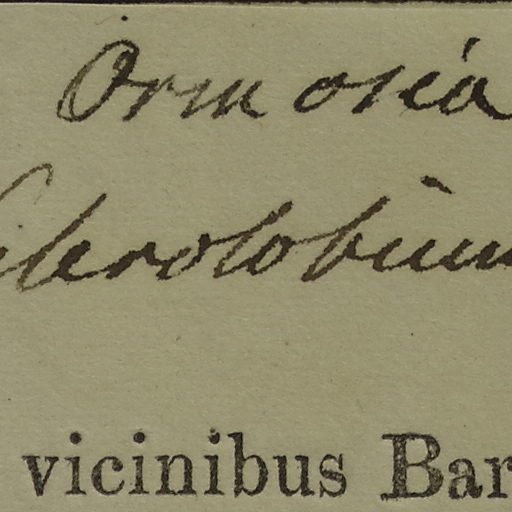 Ormosia
Sclerolobium
vicinibus Bar